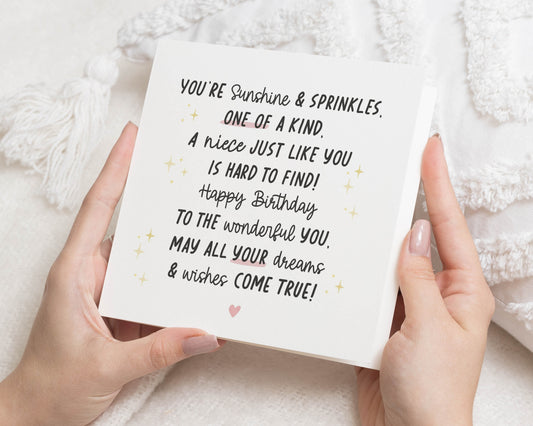 YOU'RE Sunshine & SPRINKLES,
ONE OF A KIND,
A niece JUST LIKE YOU
IS HARD TO FIND!
Happy Birthday
TO THE wonderful YOU,
MAY ALL YOUR dreams
& wishes COME TRUE!